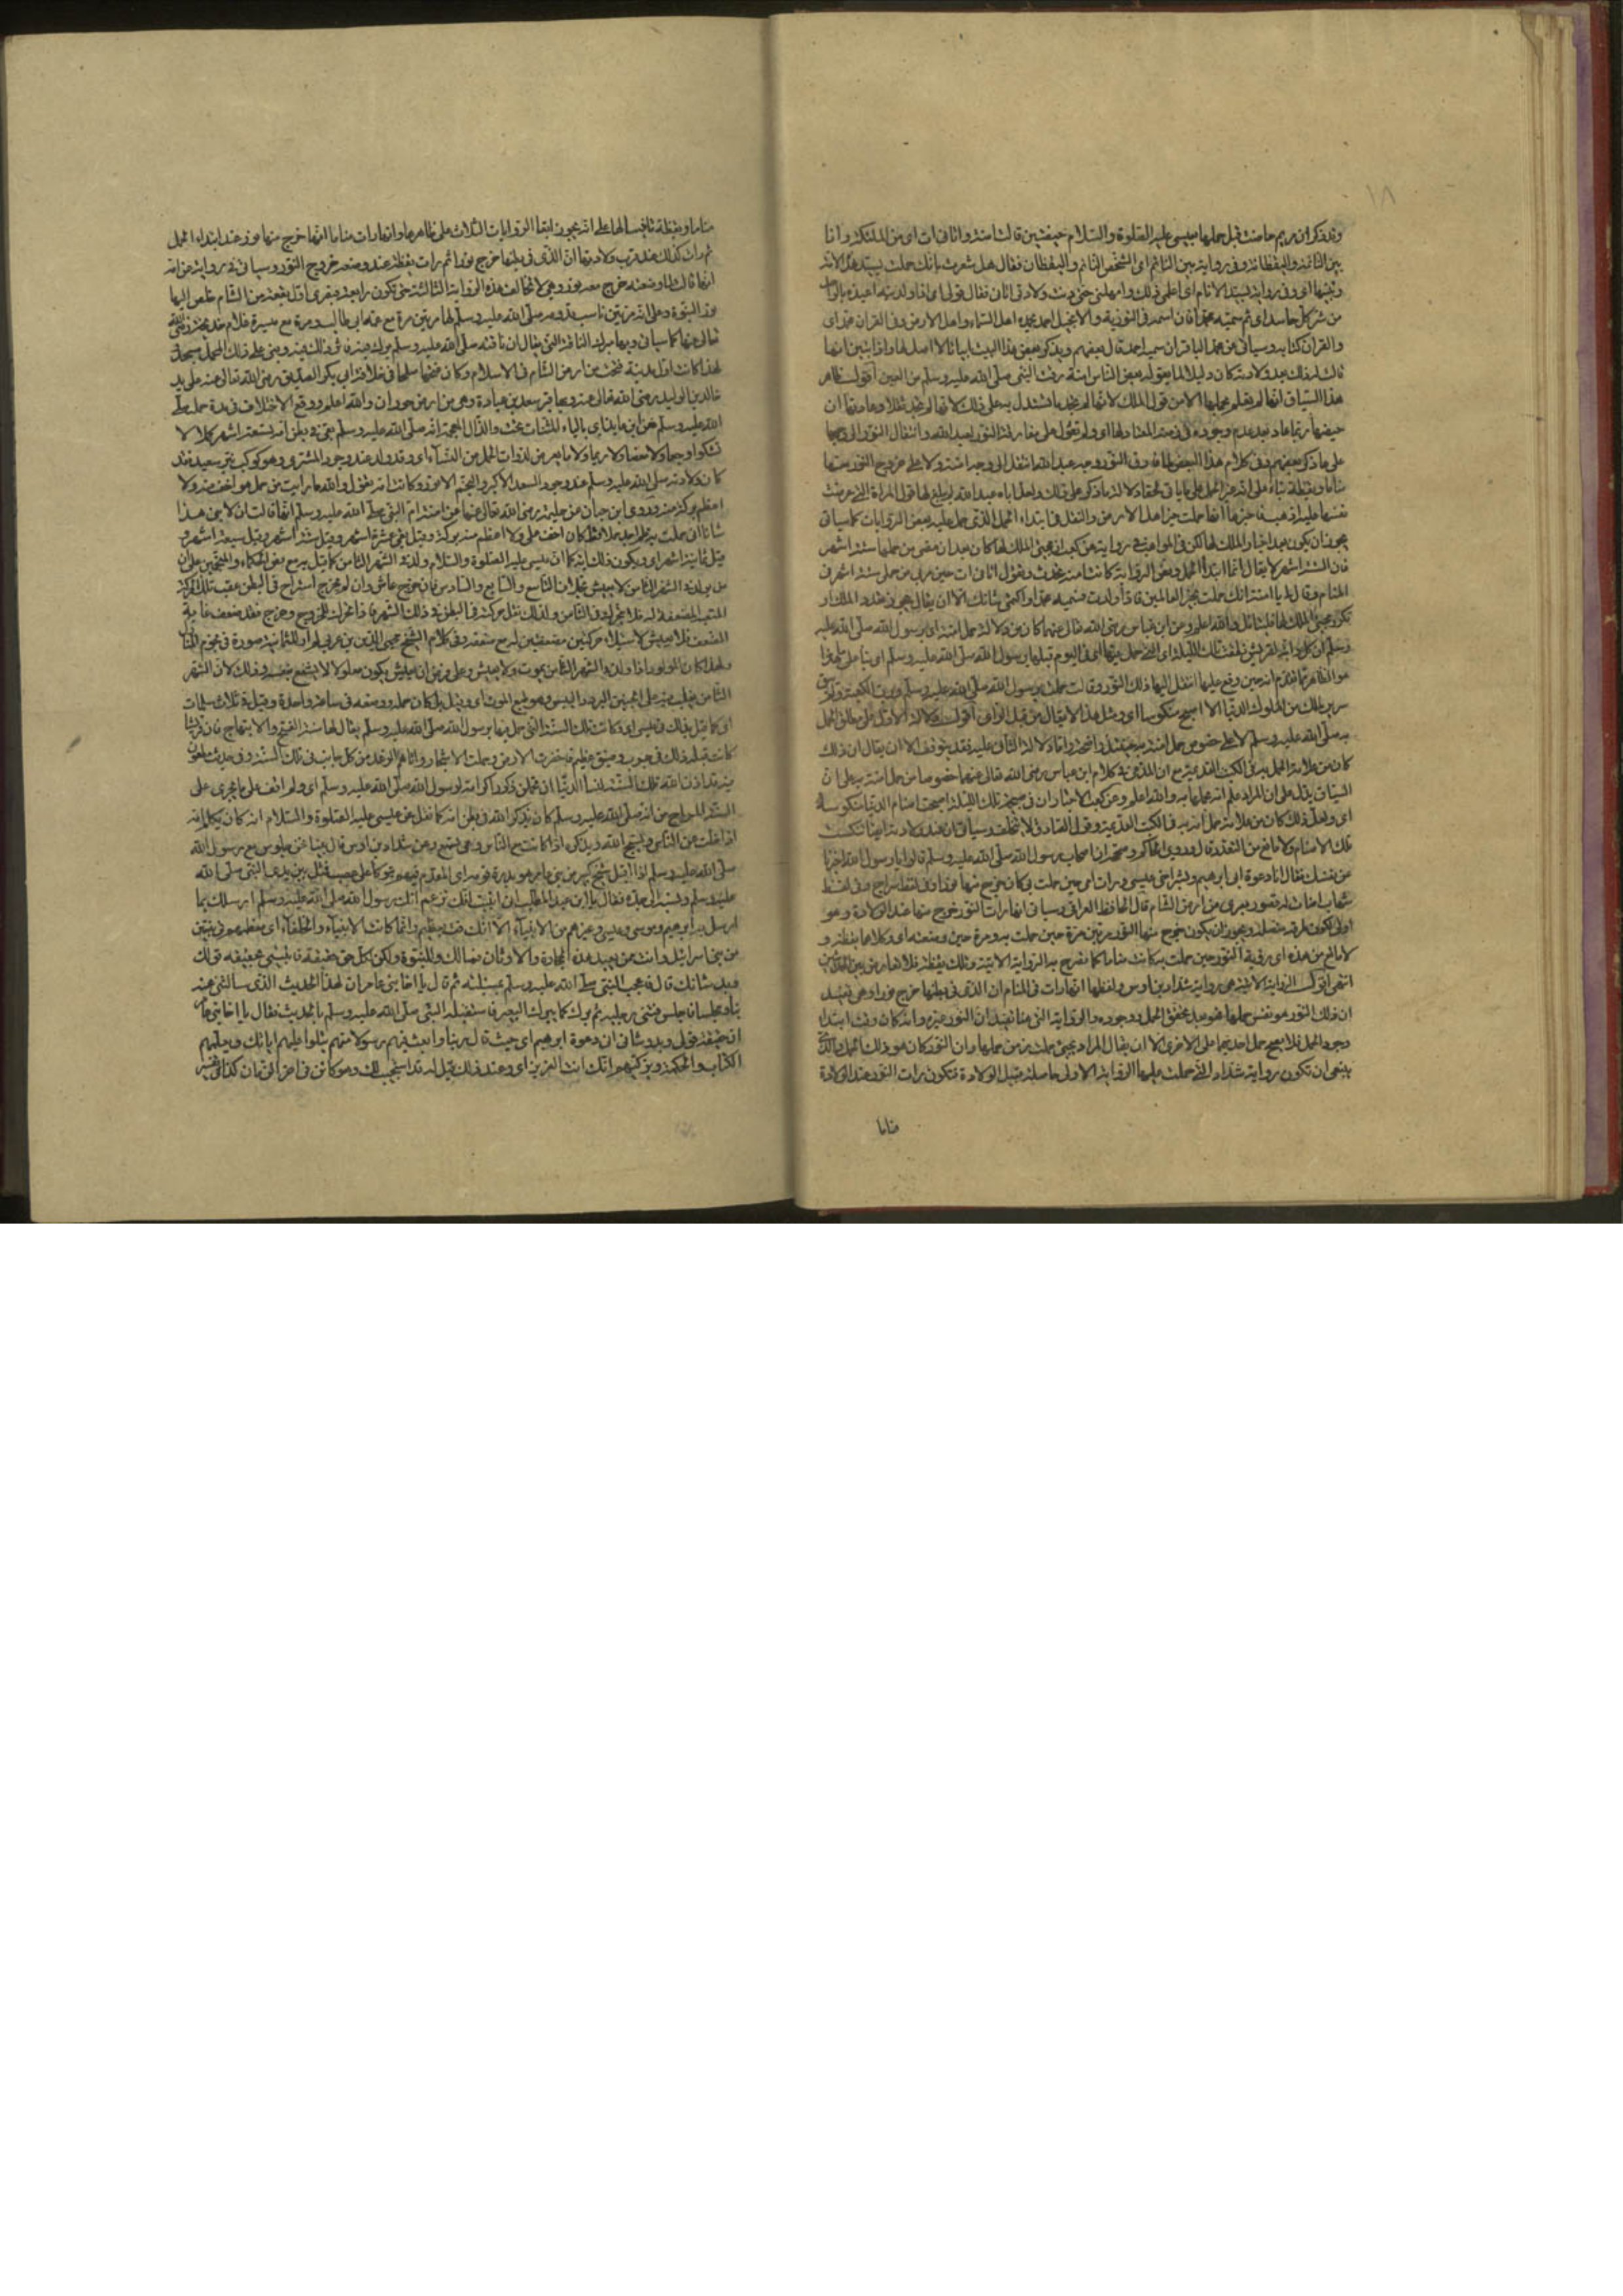 وقد ذكر ان مريم حاضت قبل حملها بعيسى عليه الصلوة والسلام حيضتين قالت امنة واتاني ات اى من الملئكة وانا
بين النائمة واليقظانة وفى رواية بين النائم اى الشخص النائم واليقظان فقال هل شعرت بانك حملت بسيد هذه الامة
ونبيها اى وفى رواية بسيد الانام اى اعلمى ذلك وامهلنى حتى دنت ولادتى اتانى فقال قولى اى اذا ولدتيه اعيذه بالواحد
من شر كل حاسد اى ثم سميه محمدا فان اسمه فى التورية والانجيل احمد يحمده اهل السماء واهل الارض وفى القران محمد اى
والقران كتابه وسياتى عن محمد الباقر ان سميه احمد قال بعضهم ويذكر بعض هذا البيت ابياتا لا اصل لها واذا ثبت انها
قالت له ذلك بعد ولادته كان دليلا لما يقوله بعض الناس امنة رقت النبى صلى الله عليه وسلم من العين أقول ظاهر
هذا السياق انها لم تعلم بحملها الا من قول الملك لانها لم تجد ما تستدل به على ذلك لانها لم تجد ثقلا وعادتها ان
حيضها ربما عاد بعد عدم وجوده فى زمنه المعتاد لها اى ولم تعول على مفارقة النور لعبد الله وانتقال النور الى وجهها
على ما ذكر بعضهم وفى كلام هذا البعض لما فارق النور وجه عبد الله انتقل الى وجه امنة ولا على خروج النور منها
مناما او يقظة بناء على انه عند الحمل على ما ياتى لخفاء دلالة ما ذكر على ذلك ولعل اباه عبد الله لم يبلغها قول المراة التى عرضت
نفسها عليه اذهب فاخبرها انها حملت خير اهل الارض والثقل فى ابتداء الحمل الذى حمل عليه بعض الروايات كما سياتى
يجوز ان يكون بعد اخبار الملك لها لكن فى المواهب فى رواية عن كعب ان مجئ الملك لها كان بعد ان مضى من حملها ستة اشهر
فان الستة اشهر لا يقال انها ابتداء الحمل وبعض الرواية كانت امنة تحدث وتقول اتانى ات حين مر بى من حملى ستة اشهر فى
المنام وقال لى يا امنة انك حملت بخير العالمين فاذا ولدت فسميه محمدا واكتمى شانك الا ان يقال يجوز تعدد الملك او
تكرر مجئ الملك لها فليتامل والله اعلم وعن ابن عباس رضى الله تعالى عنهما كان من دلالة حمل امنة اى برسول الله صلى الله عليه
وسلم ان كل دابة لقريش نطقت تلك الليلة اى التى حمل فيها اى فى اليوم قبلها برسول الله صلى الله عليه وسلم اى بناء على ما هو
الظاهر مما تقدم انه حين وقع عليها انتقل اليها ذلك النور وقالت حملت برسول الله صلى الله عليه وسلم ورب الكعبة ولم يبق
سرير لملك من الملوك الدنيا الا اصبح منكوسا اى ومثل هذا لا يقال من قبل الراى أقول دلالة الاول على مطلق الحمل
به صلى الله عليه وسلم لا على خصوص حمل امنة به فيه نظر واضح واما دلالة الثانى عليه فقد يتوقف الا ان يقال ان ذلك
كان من علامة الحمل به فى الكتب القديمة مع ان المدعى فى كلام ابن عباس رضى الله تعالى عنهما خصوصا من حمل امنة به على ان
السياق يدل على ان المراد علم انه حملها به والله اعلم وعن كعب الاحبار ان فى صبيحة تلك الليلة اصبحت اصنام الدنيا منكوسة
اى ولعل ذلك كان من علامة حمل امه به فى الكتب القديمة وقول الصادق لا يتخلف وسياتى ان عند ولادته ايضا تنكست
تلك الاصنام ولا مانع من التعدد قال وروى الحاكم وصححه ان اصحاب رسول الله صلى الله عليه وسلم قالوا يا رسول الله اخبرنا
عن نفسك فقال انا دعوة ابى ابرهيم وبشرى اخى عيسى ورات امى حين حملت بى كان خرج منها نور وفى لفظ سراج وفى لفظ
شهاب اضات له قصور بصرى من ارض الشام قال الحافظ العراقى وسياتى انها رات النور خرج منها عند الولادة وهو
اولى لكون طرقه متصلة ويجوز ان يكون خرج منها النور مرتين مرة حين حملت به ومرة حين وضعته اى وكلاهما يقظة و
لا مانع من هذه اى رؤية النور حين حملت به كانت مناما كما تصرح به الرواية الاتية وتلك يقظة فلا تعارض بين الحديثين
انتهى أقول الرواية الاتية هى رواية شداد بن اوس ولفظها انها رات فى المنام ان الذى فى بطنها خرج نورا وهى تفيد
ان ذلك النور هو نفس حملها فهو بعد تحقق الحمل ووجوده والرواية التى هنا تفيد ان النور غيره وانه كان وقت ابتداء
وجود الحمل فلا يصح حمل احدهما على الاخرى الا ان يقال المراد بحين حملت زمن حملها وان النور كان هو ذلك الحمل والذى
ينبغى ان تكون رواية شداد التى حملت عليها الرواية الاولى حاصلة قبيل الولادة فتكون رات النور عند الولادة
مناما
مناما ويقظة تانيسا لها على انه يجوز ابقا الروايات الثلاث على ظاهرها وانها رات مناما انها خرج منها نور عند ابتداء الحمل
ثم رات كذلك عند قرب ولادتها ان الذى فى بطنها خرج نورا ثم رات يقظة عند وضعه خروج النور وسياتى فى رواية عن امه
انها قالت لما وضعته خرج معه نور وهى لا تخالف هذه الرواية الثالثة حتى تكون رابعة وبصرى اول بقعة من الشام خلص اليها
نور النبوة وعلى انه مرتين ناسب قدومه صلى الله عليه وسلم لها مرتين مرة مع عمه ابى طالب ومرة مع ميسرة غلام خديجة رضى الله
تعالى عنها كما سياتى وبها مبرك الناقة التى يقال ان ناقته صلى الله عليه وسلم بركت فيه فاثر ذلك فيه وبنى على ذلك المحل مسجد
لهذا كانت اول مدينة فتحت من ارض الشام فى الاسلام وكان فتحها صلحا فى خلافة ابى بكر الصديق رضى الله تعالى عنه على يد
خالد بن الوليد رضى الله تعالى عنه وبها قبر سعد بن عبادة وهى من ارض حوران والله اعلم ووقع الاختلاف فى مدة حمله صلى
الله عليه وسلم فعن ابن عايذ اى بالياء المثناة تحت والذال المعجمة انه صلى الله عليه وسلم بقى فى بطن امه تسعة اشهر كملا لا
تشكو وجعا ولا مغصا ولا ريحا ولا ما يعرض لذوات الحمل من النساء اى وقد ولد عند وجود المشترى وهو كوكب نير سعيد فقد
كان ولادته صلى الله عليه وسلم عند وجود السعد الاكبر والنجم الانور وكانت امه تقول والله ما رايت من حمل هو اخف منه ولا
اعظم بركة منه وروى ابن حبان عن حليمة رضى الله تعالى عنها عن امنة ام النبى صلى الله عليه وسلم انها قالت ان لابنى هذا
شانا انى حملت به فلم اجد حملا قط كان اخف على ولا اعظم منه بركة وقيل بقى عشرة اشهر وقيل ستة اشهر وقيل سبعة اشهر و
قيل ثمانية اشهر اى ويكون ذلك اية كما ان عيسى عليه الصلوة والسلام ولد فى الشهر الثامن كما قيل به مع نص الحكماء والمنجمين على ان
من يولد فى الشهر الثامن لا يعيش بخلاف التاسع والسابع والسادس فان خرج عاش وان لم يخرج استراح فى البطن عقب تلك الحركة
المتعبة المضعفة له فلا يتحرك فى الثامن ولذلك تقل حركته فى البطن فى ذلك الشهر فاذا تحرك للخروج وخرج فقد ضعف غاية
الضعف فلا يعيش لاستيلاء حركتين مضعفتين له مع ضعفه وفى كلام الشيخ محيى الدين بن عربى لم ار للثمانية صورة فى نجوم المنازل
ولهذا كان المولود اذا ولد فى الشهر الثامن يموت ولا يعيش وعلى فرض ان يعيش يكون معلولا لا ينتفع بنفسه وذلك لان الشهر
الثامن يغلب فيه على الجنين البرد واليبس وهو طبع الموت اى وقيل بل كان حمله ووضعه فى ساعة واحدة وقيل فى ثلاث ساعات
اى كما قيل بذلك فى عيسى اى وكانت تلك السنة التى حمل فيها برسول الله صلى الله عليه وسلم يقال لها سنة الفتح والابتهاج فان قريشا
كانت قبل ذلك فى جدب وضيق عظيم فاخضرت الارض وحملت الاشجار واتاهم الرغد من كل جانب فى تلك السنة وفى حديث مطعون
فيه قد اذن الله تلك السنة لنساء الدنيا ان يحملن ذكورا كرامة لرسول الله صلى الله عليه وسلم اى ولم اقف على ما يجرى على
السنة المداح من انه صلى الله عليه وسلم كان يذكر الله فى بطن امه كما نقل عن عيسى عليه الصلوة والسلام انه كان يكلم امه
اذا خلت عن الناس ويسبح الله ويذكره اذا كانت مع الناس وهى تسمع وعن شداد بن اوس قال بينا نحن جلوس مع رسول الله
صلى الله عليه وسلم اذ اقبل شيخ كبير من بنى عامر هو مدرة قومه اى المقدم فيهم يتوكأ على عصا فمثل بين يدى النبى صلى الله
عليه وسلم ونسبه الى جده فقال يا ابن عبد المطلب انى انبئت انك تزعم انك رسول الله صلى الله عليه وسلم ارسلك بما
ارسل به ابرهيم وموسى وعيسى وغيرهم من الانبياء الا انك فهت بعظيم وانما كانت الانبياء والخلفاء اى معظمهم فى بيتين
من بنى اسرائيل وانت ممن يعبد هذه الحجارة والاوثان فما لك وللنبوة ولكن لكل حق حقيقة فانبئنى بحقيقة قولك
وبدء شانك قال فعجب النبى صلى الله عليه وسلم بمسئلته ثم قال يا اخا بنى عامر ان لهذا الحديث الذى سالتنى عنه
نبأ ومجلسا فاجلس فثنى رجليه ثم برك كما يبرك البعير فاستقبله النبى صلى الله عليه وسلم بالحديث فقال يا اخا بنى عامر
ان حقيقة قولى وبدء شانى انى دعوة ابى ابرهيم اى حيث قال ربنا وابعث فيهم رسولا منهم يتلوا عليهم اياتك ويعلمهم
الكتاب والحكمة ويزكيهم انك انت العزيز اى وعند ذلك قيل له قد استجيب لك وهو كائن فى اخر الزمان كذا فى تفسير